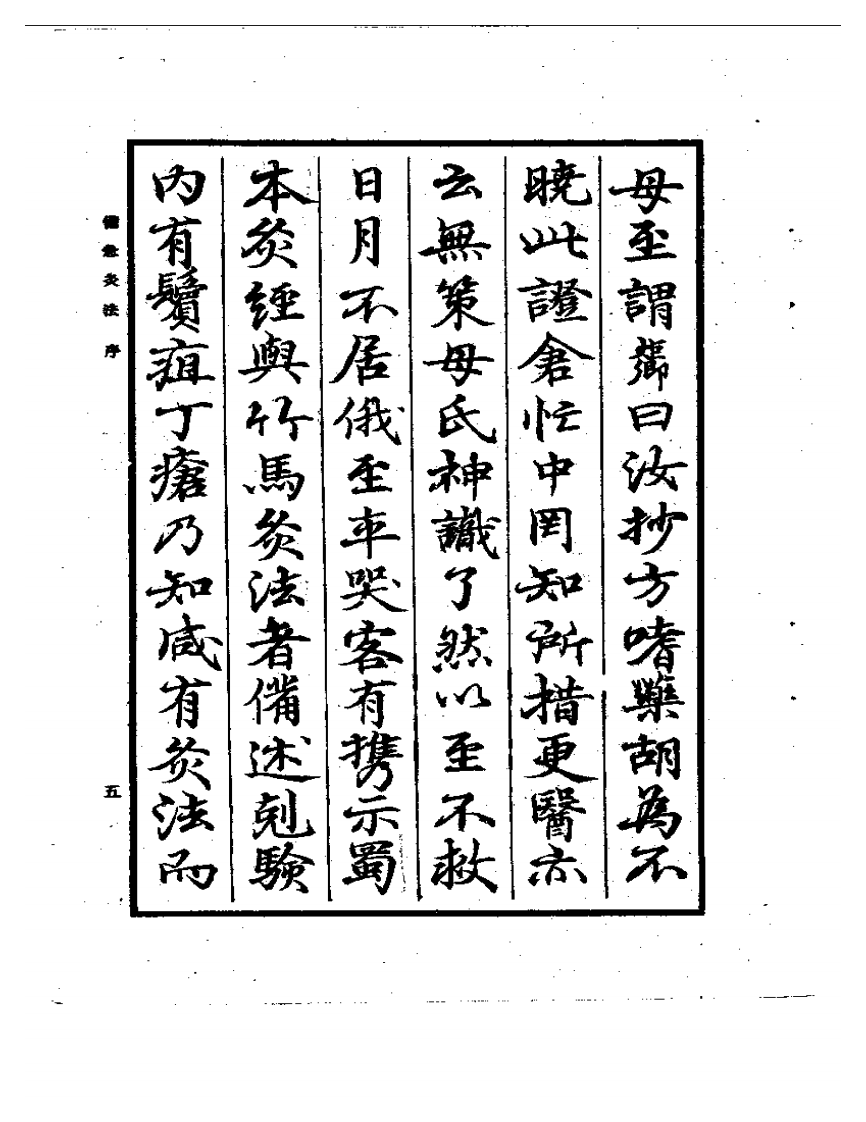 母至謂鄰曰汝抄方嗜藥胡為不
曉此證倉忙中罔知所措更醫亦
云無策母氏神識了然以至不救
日月不居俄至卒哭客有携示蜀
本灸經與竹馬灸法者備述剋驗
內有鬢疽丁瘡乃知咸有灸法而
備急灸法 序
五